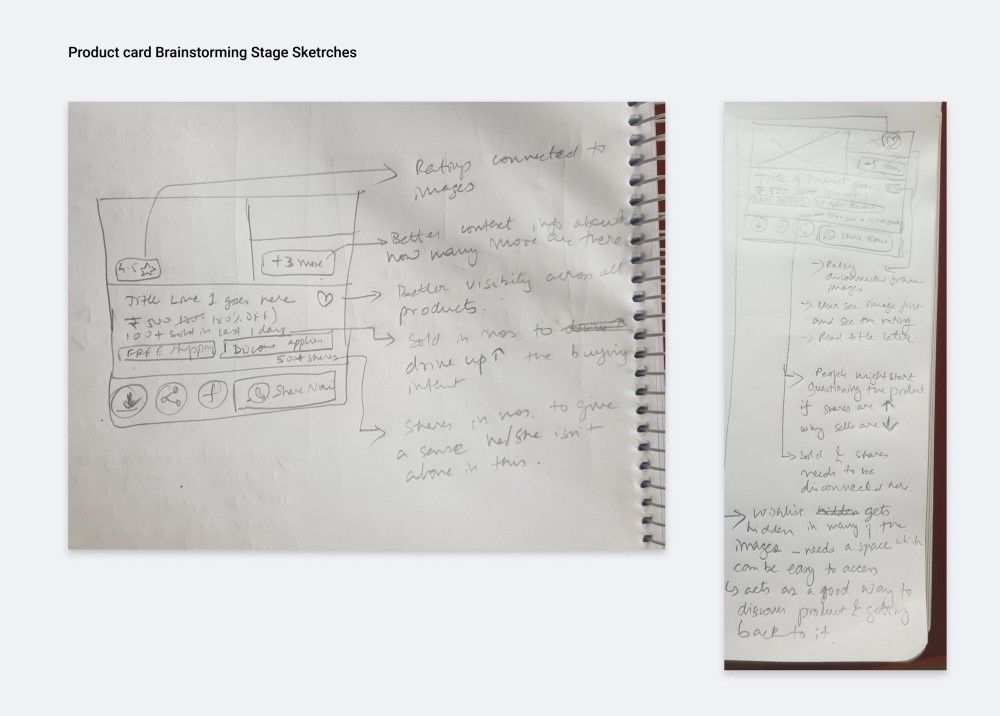 Product card Brainstorming Stage Sketrches
Ratings connected to
images
Better context info about
how many more are there
Better visibility across all
products.
Sold in nos. to
drive up↑ the buying
intent
Shares in nos. to give
a sense he/she isn't
alone in this.
4.5
+3 more
Title Line 1 goes here
₹ 500
100+ sold in last 1 day
FREE Shipping
Discount applied
500+ shares
Share Now
Title of Product goes...
₹ 500
Share Now
→ Rating
disconnected from
images
→ User see image first
and see the rating
→ Read title later
People might start
questioning the product
if shares are ↑
why sells are ↓
Sold & shares
needs to be
disconnected here.
→ Wishlist hidden gets
hidden in many of the
images - needs a space which
can be easy to access
↳ acts as a good way to
discover product & getting
back to it.